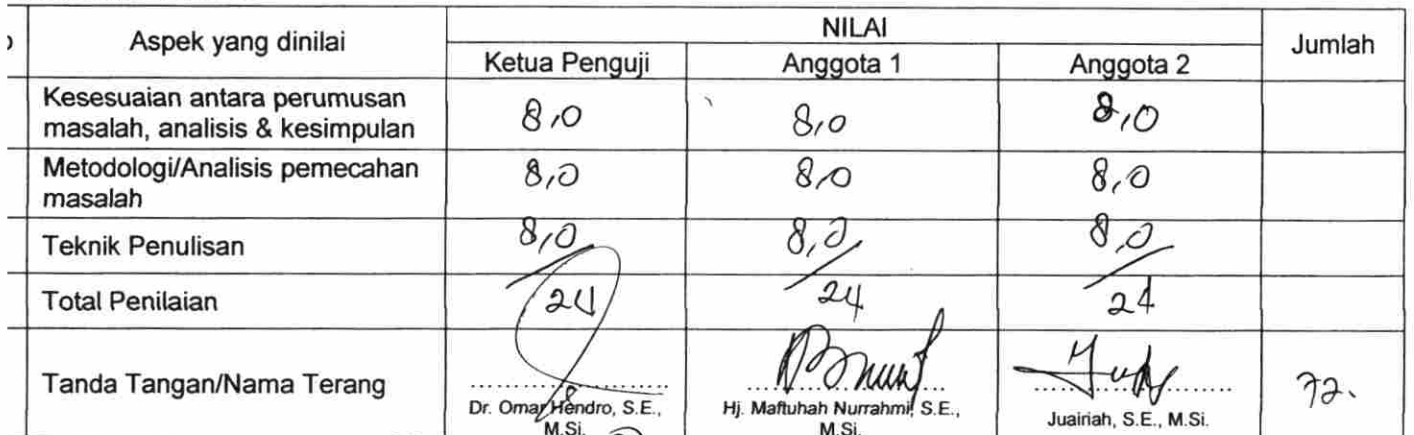 Aspek yang dinilai
NILAI
Jumlah
Ketua Penguji
Anggota 1
Anggota 2
Kesesuaian antara perumusan
masalah, analisis & kesimpulan
8,0
8,0
8,0
Metodologi/Analisis pemecahan
masalah
8,0
8,0
8,0
Teknik Penulisan
8,0
8,0
8,0
Total Penilaian
24
24
24
Tanda Tangan/Nama Terang
Dr. Omar Hendro, S.E.,
M.Si.
Hj. Maftuhah Nurrahmi, S.E.,
M.Si.
Juairiah, S.E., M.Si.
72.